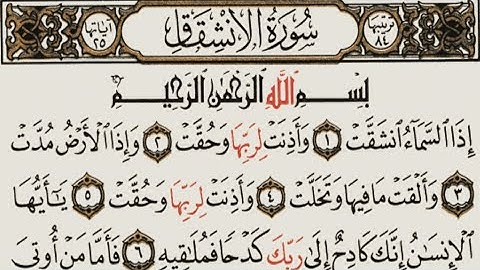 ترتيبها ٨٤ سُورَةُ الِانْشِقَاقِ آياتها ٢٥
بِسْمِ اللَّهِ الرَّحْمَٰنِ الرَّحِيمِ
إِذَا السَّمَاءُ انْشَقَّتْ ١ وَأَذِنَتْ لِرَبِّهَا وَحُقَّتْ ٢ وَإِذَا الْأَرْضُ مُدَّتْ
٣ وَأَلْقَتْ مَا فِيهَا وَتَخَلَّتْ ٤ وَأَذِنَتْ لِرَبِّهَا وَحُقَّتْ ٥ يَا أَيُّهَا
الْإِنْسَانُ إِنَّكَ كَادِحٌ إِلَىٰ رَبِّكَ كَدْحًا فَمُلَاقِيهِ ٦ فَأَمَّا مَنْ أُوتِيَ